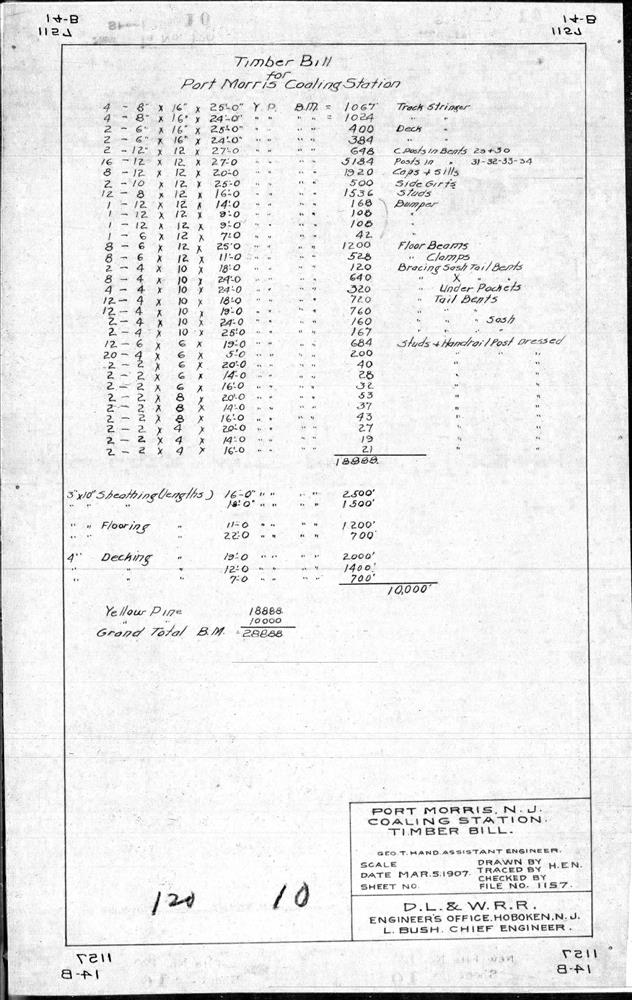 14-B 14-B
1157 1157
Timber Bill
for
Port Morris Coaling Station
4 - 8" x 16" x 25'-0" Y.P. B.M. = 1067 Track Stringer
4 - 8" x 16" x 24'-0" " " " " = 1024 " "
2 - 6" x 16" x 25'-0" " " " " 400 Deck "
2 - 6" x 16" x 24'-0" " " " " 384 " "
2 - 12" x 12 x 27'-0 " " " " 648 C. Posts in Bents 29+30
16 - 12 x 12 x 27-0 " " " " 5184 Posts in " 31-32-33-34
8 - 12 x 12 x 20-0 " " " " 1920 Caps + Sills
2 - 10 x 12 x 25-0 " " " " 500 Side Girts
12 - 8 x 12 x 16-0 " " " " 1536 Studs
1 - 12 x 12 x 14-0 " " " " 168 Bumper
1 - 12 x 12 x 9-0 " " " " 108 "
1 - 12 x 12 x 9-0 " " " " 108 "
1 - 6 x 12 x 7-0 " " " " 42 "
8 - 6 x 12 x 25-0 " " " " 1200 Floor Beams
8 - 6 x 12 x 11-0 " " " " 528 " Clamps
2 - 4 x 10 x 18-0 " " " " 120 Bracing Sash Tail Bents
8 - 4 x 10 x 24-0 " " " " 640 " X " "
4 - 4 x 10 x 24-0 " " " " 320 " Under Pockets
12 - 4 x 10 x 18-0 " " " " 720 " Tail Bents
12 - 4 x 10 x 19-0 " " " " 760 " " "
2 - 4 x 10 x 24-0 " " " " 160 " " " Sash
2 - 4 x 10 x 25-0 " " " " 167 " " " "
12 - 6 x 6 x 19-0 " " " " 684 Studs + Handrail Post Dressed
20 - 4 x 6 x 5-0 " " " " 200 " " "
2 - 2 x 6 x 20-0 " " " " 40 " " "
2 - 2 x 6 x 14-0 " " " " 28 " " "
2 - 2 x 6 x 16-0 " " " " 32 " " "
2 - 2 x 8 x 20-0 " " " " 53 " " "
2 - 2 x 8 x 14-0 " " " " 37 " " "
2 - 2 x 8 x 16-0 " " " " 43 " " "
2 - 2 x 4 x 20-0 " " " " 27 " " "
2 - 2 x 4 x 14-0 " " " " 19 " " "
2 - 2 x 4 x 16-0 " " " " 21 " " "
18888
3"x10" Sheathing (lengths) 16-0" " " " " 2500'
" " " " 18-0" " " " " 1500'
" " Flooring " 11-0 " " " " 1200'
22-0 " " " " 700'
4" Decking " 19-0 " " " " 2000'
" " " 12-0 " " " " 1400'
" " " 7-0 " " " " 700'
10,000'
Yellow Pine 18888
" " 10000
Grand Total B.M. = 28888
PORT MORRIS, N.J.
COALING STATION.
TIMBER BILL.
GEO. T. HAND. ASSISTANT ENGINEER.
SCALE DRAWN BY H.E.N.
DATE MAR. 5. 1907. TRACED BY
CHECKED BY
SHEET NO. FILE NO. 1157.
D. L. & W. R. R.
ENGINEER'S OFFICE. HOBOKEN, N. J.
L. BUSH. CHIEF ENGINEER.
120 10
1157 1157
14-B 14-B